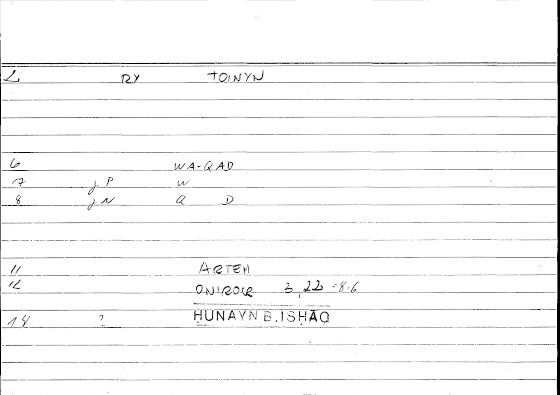 2 RY TOINYN
6 WA-QAD
7 J P W
8 J N Q D
11 ARTEM
12 ONIROCR 3,22 -8.6
14 ? HUNAYN B. ISHĀQ